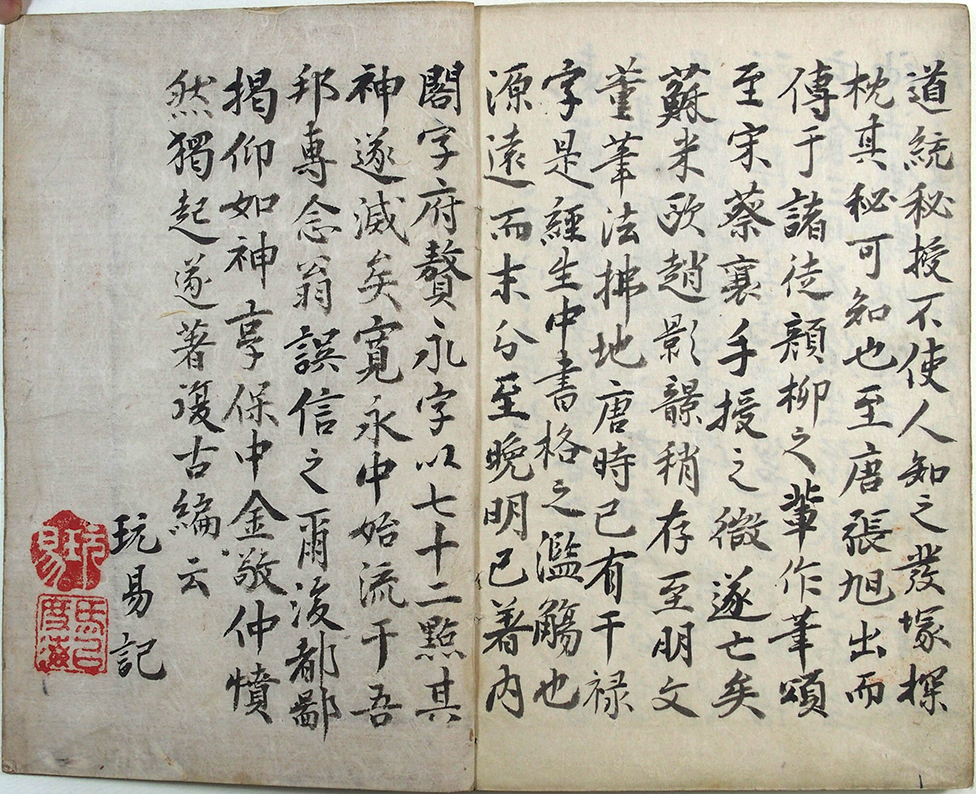 道統秘授不使人知之發塚探
枕其秘可知也至唐張旭出而
傳于諸徒顏柳之輩作筆頌
至宋蔡襄手授之徵遂亡矣
蘇米歐趙影韻稍存至明文
董筆法拂地唐時已有干祿
字是經生中書格之濫觴也
源遠而末分至晚明已著內
閣字府贅永字以七十二點其
神遂滅矣寬永中始流于吾
邦專念翁誤信之爾後都鄙
揭仰如神享保中金敬仲憤
然獨起遂著復古編云
玩易記
玩易